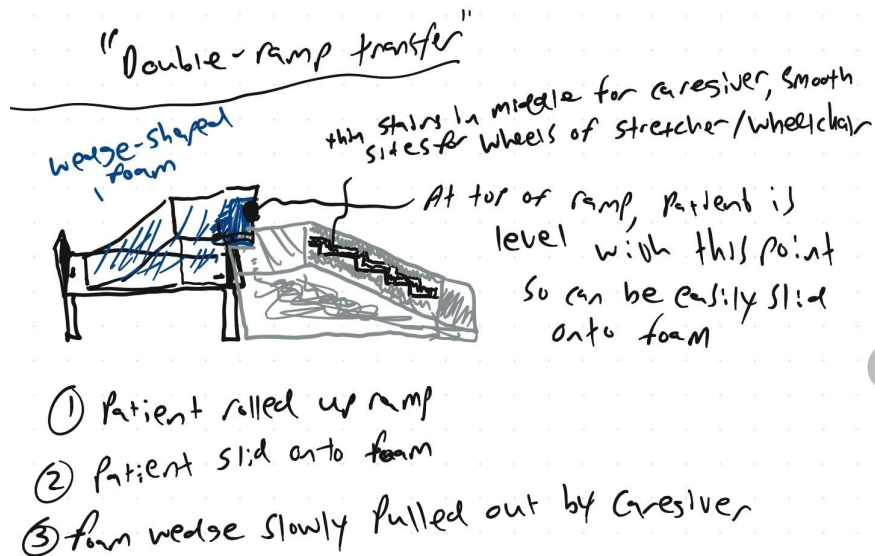 "Double-ramp transfer"
wedge-shaped
foam
thin stairs in middle for caregiver, smooth
sides for wheels of stretcher/wheelchair
At top of ramp, patient is
level with this point
so can be easily slid
onto foam
① Patient rolled up ramp
② Patient slid onto foam
③ foam wedge slowly pulled out by caregiver